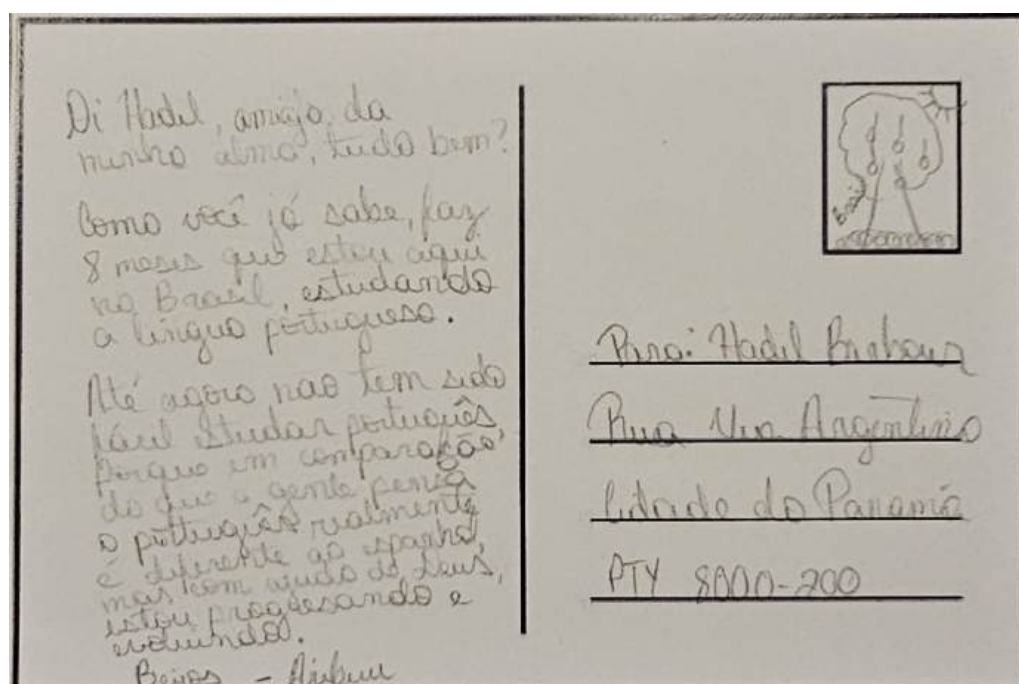 Oi Hadil, amigo da
minha alma, tudo bem?
Como você já sabe, faz
8 meses que estou aqui
no Brasil, estudando
a língua portuguesa.
Até agora não tem sido
fácil estudar português,
porque em comparação
do que a gente pensa
o português realmente
é diferente ao espanhol,
mas com ajuda de Deus,
estou progresando e
evoluindo.
Beijos -
Brasil
Para: Hadil
Rua Vía Argentina
Cidade do Panamá
PTY 8000-200